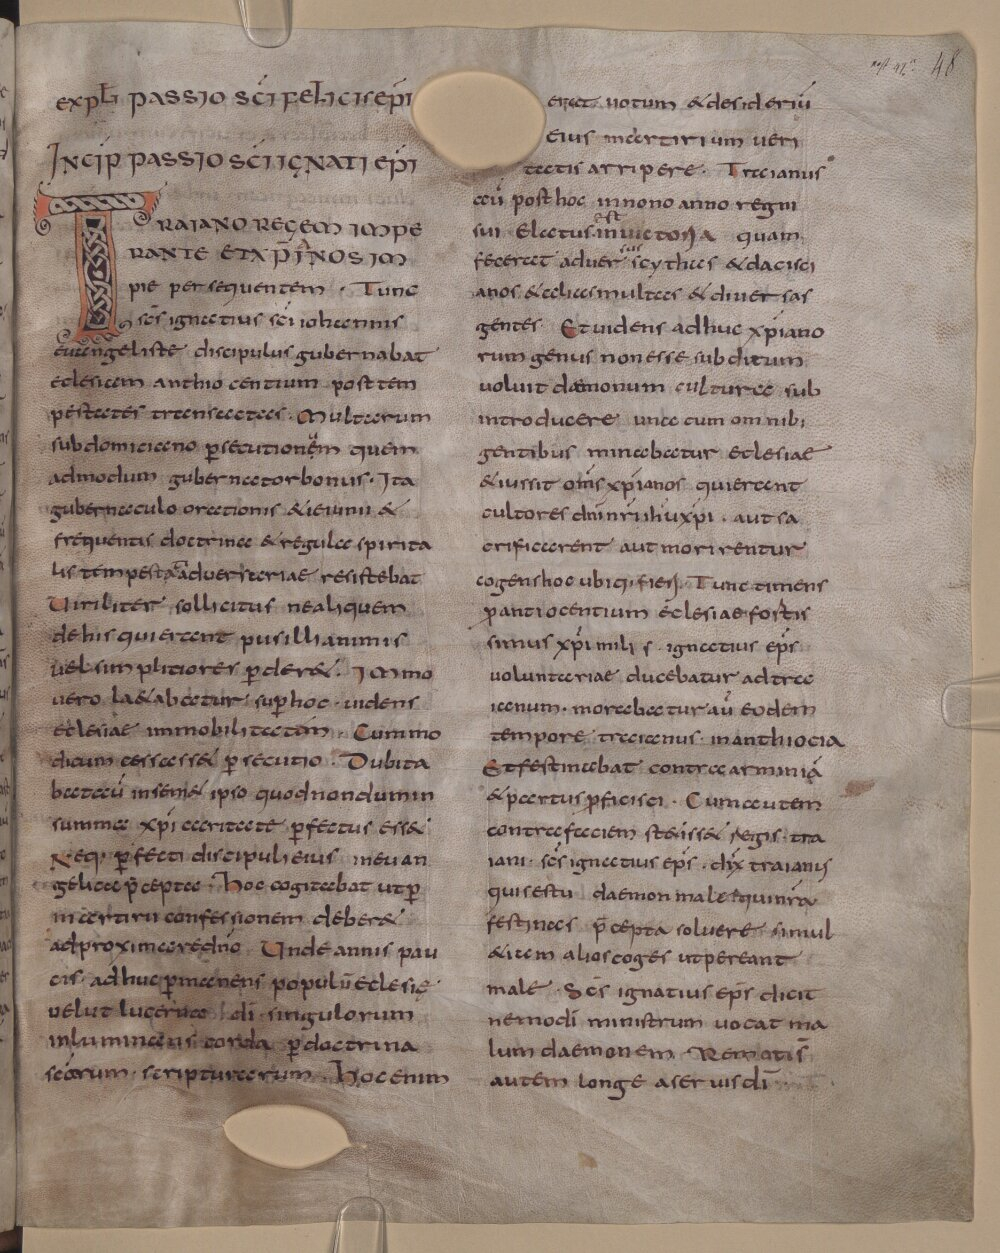 48
expƚ passio sc̄i feƚicis ep̄i
Incip passio sc̄i ignati ep̄i
Traiano regem impe
rante et xp̄ianos im
pie persequentem · Tunc
sc̄s ignatius sc̄i iohannis
euangeliste discipulus gubernabat
eclesiam anthiocentium post tem
pestates transactas · Multarum
sub domiciano p̱secutionem quem
admodum gubernator bonus · Ita
gubernaculo orationis & ieiunii &
frequentis doctrinae & regulae spirita
lis tempesta aduersariae resistebat
Uiriliter sollicitus ne aliquem
de his qui erant pusillianimis
uel simplitiores p̱der& · Immo
uero la&abatur sup̱ hoc · uidens
eclesiae immobilitatem · Cum mo
dicum cessass& p̱secutio · Dubita
bat aū in sem& ipso quod nondum in
summa xp̄i caritate p̱fectus ess&
Neq; p̱fecti discipuli eius in euan
gelica p̄cepta · Hoc cogitabat ut p̱
martirii confessionem deber&
adproximare dn̄o Unde annis pau
cis · adhuc p̱manens populū eclesię
uelut lucerna di · singulorum
inluminans corda p̱ doctrina
scārum · scripturarum · Hoc enim
erat uotum & desideriū
eius martirium ueri
tatis arripere · Traianus
aū post hoc in nono anno regni
sui Elatus est in uictoria quam
fecerat aduersus scythas & dacisci
anos & alias multas & diuersas
gentes · Et uidens adhuc xp̄iano
rum genus non esse subditum
uoluit dæmonum culturae sub
introducere una cum omnib;
gentibus minabatur eclesiae
& iussit om̄s xp̄ianos qui erant
cultores dn̄i nr̄i ihū xp̄i · aut sa
crificarent aut morirentur
cogens hoc ubiq; fieri Tunc timens
p̱ antiocentium eclesiae fortis
simus xp̄i miles · ignatius ep̄s
uoluntariae ducebatur ad tra
ianum · morabatur aū eodem
tempore traianus in anthiocia
Et festinabat contra arminiā
& partus p̱ficisci · Cum autem
contra faciem st&iss& regis · tra
iani · sc̄s ignatius ep̄s · dix̄ traianus
qui es tu daemon male qui nr̄a
festinas p̄cepta soluere simul
& iam alios coges ut pereant
male · Sc̄s ignatius ep̄s dicit
nemo di ministrum uocat ma
lum daemonem · Remotis
autem longe a seruis di